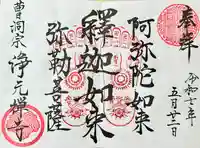 奉拝
令和七年
五月廿二日
阿弥陀如来
釋迦如来
弥勒菩薩
曹洞宗
浄元禅寺